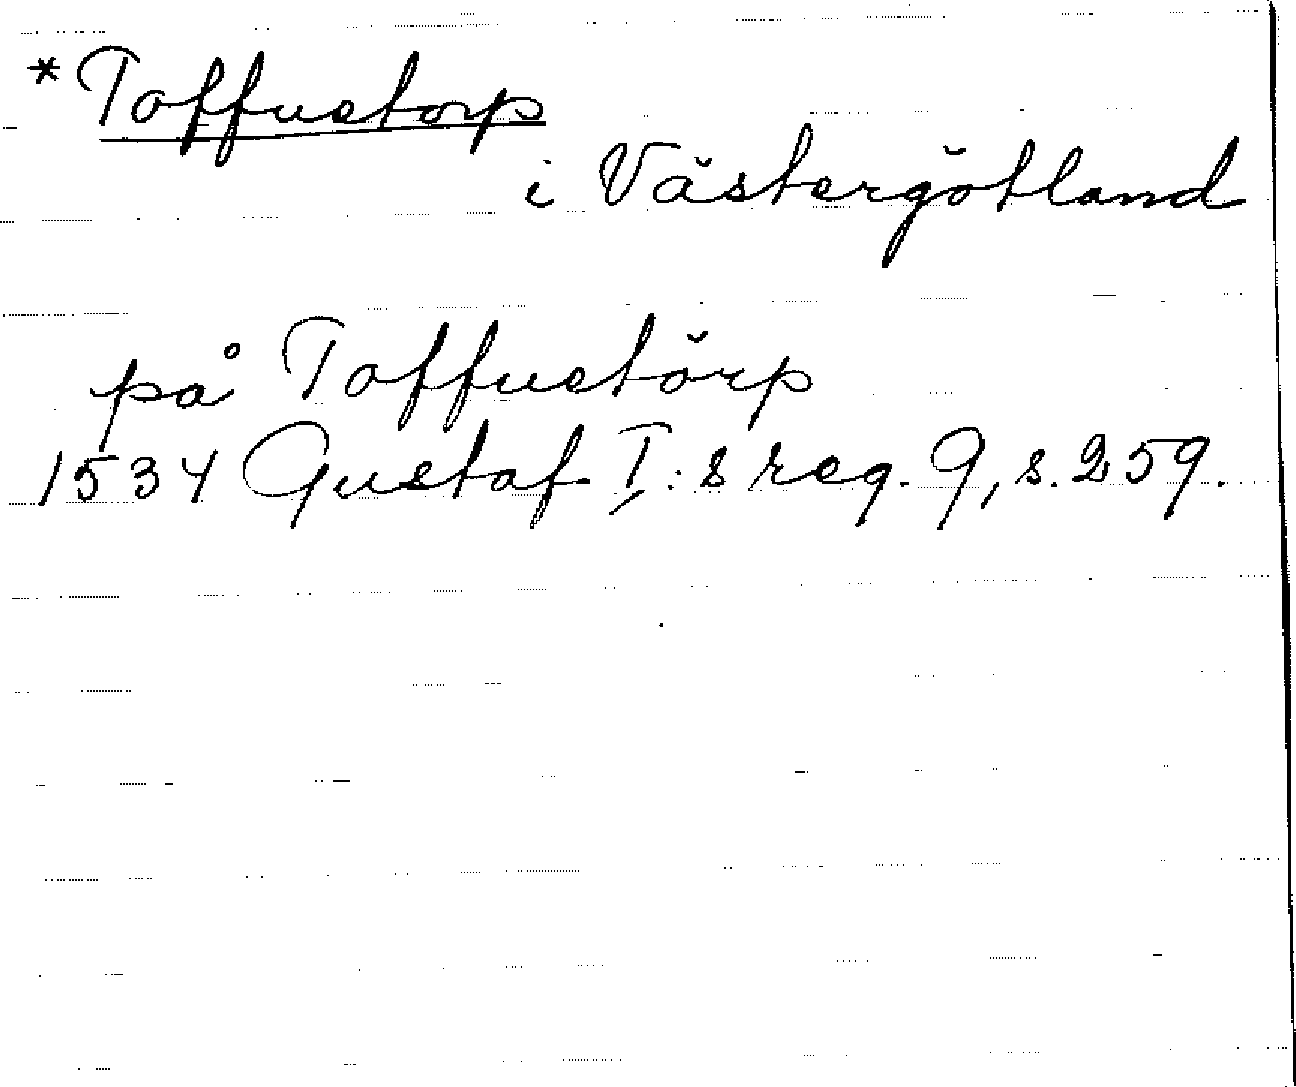 *Toffustorp
i Västergötland
på Toffustörp
1534 Gustaf I:s reg. 9, s. 259.